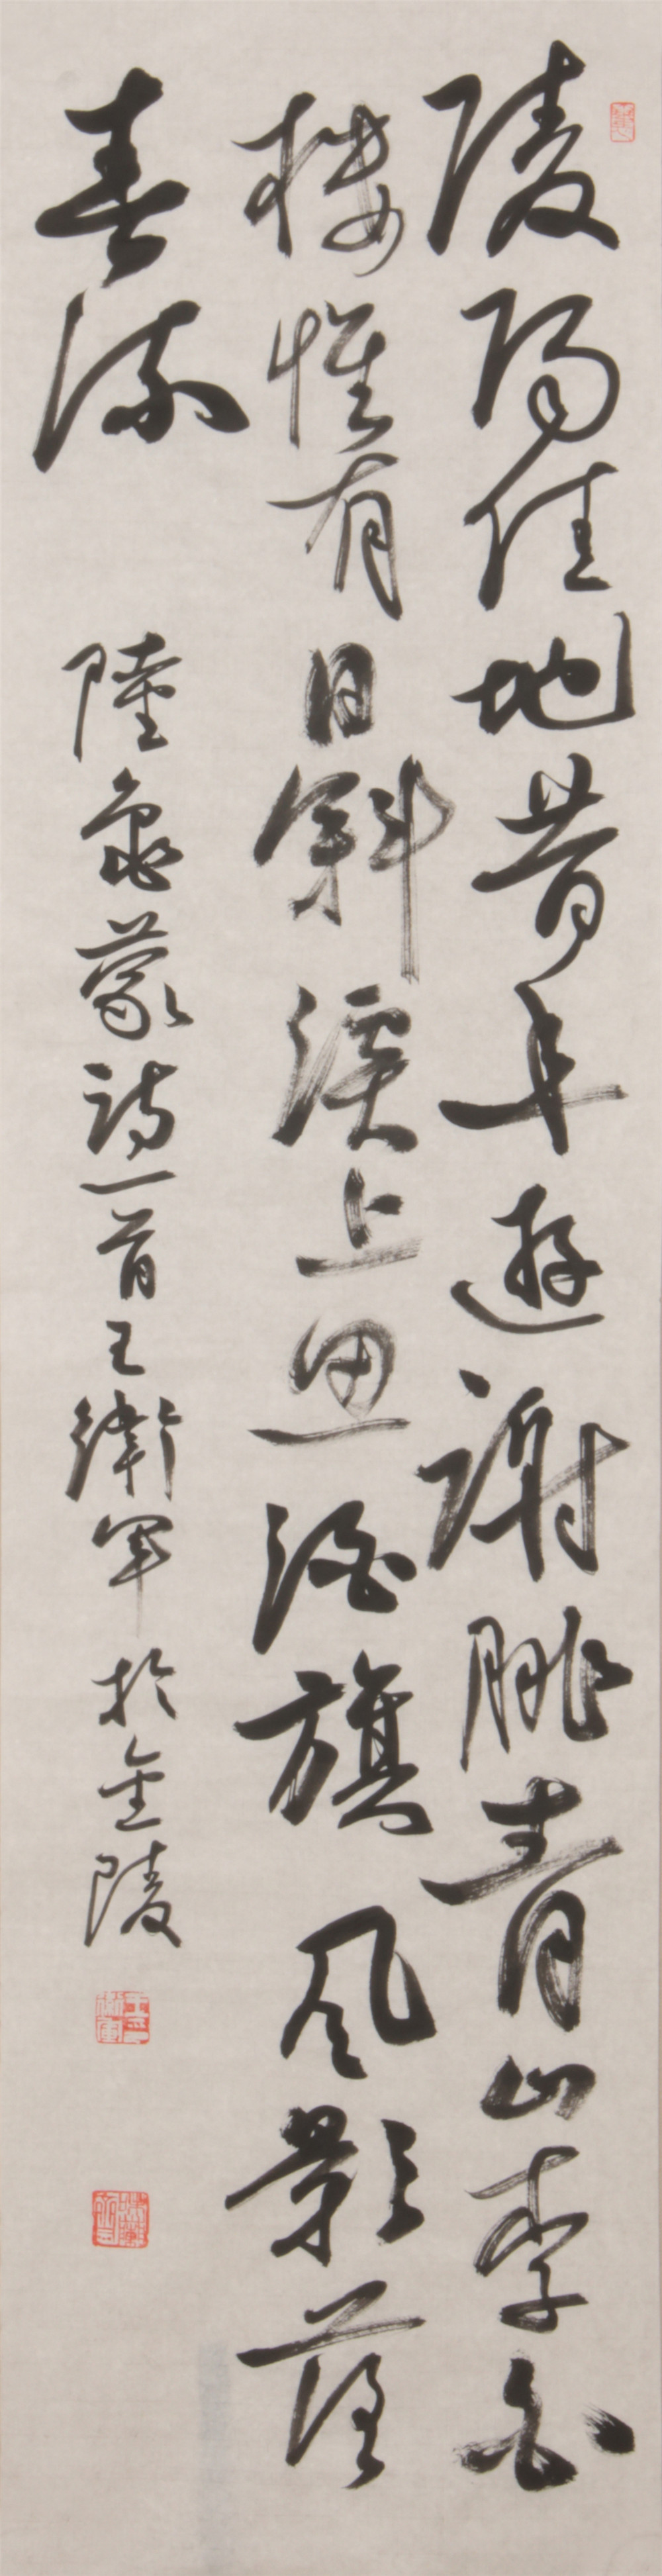 陵陽佳地昔年遊謝脁青山李白
樓惟有日斜溪上思酒旗風影落
春流
陸龜蒙詩一首王衛軍於金陵
王衛軍